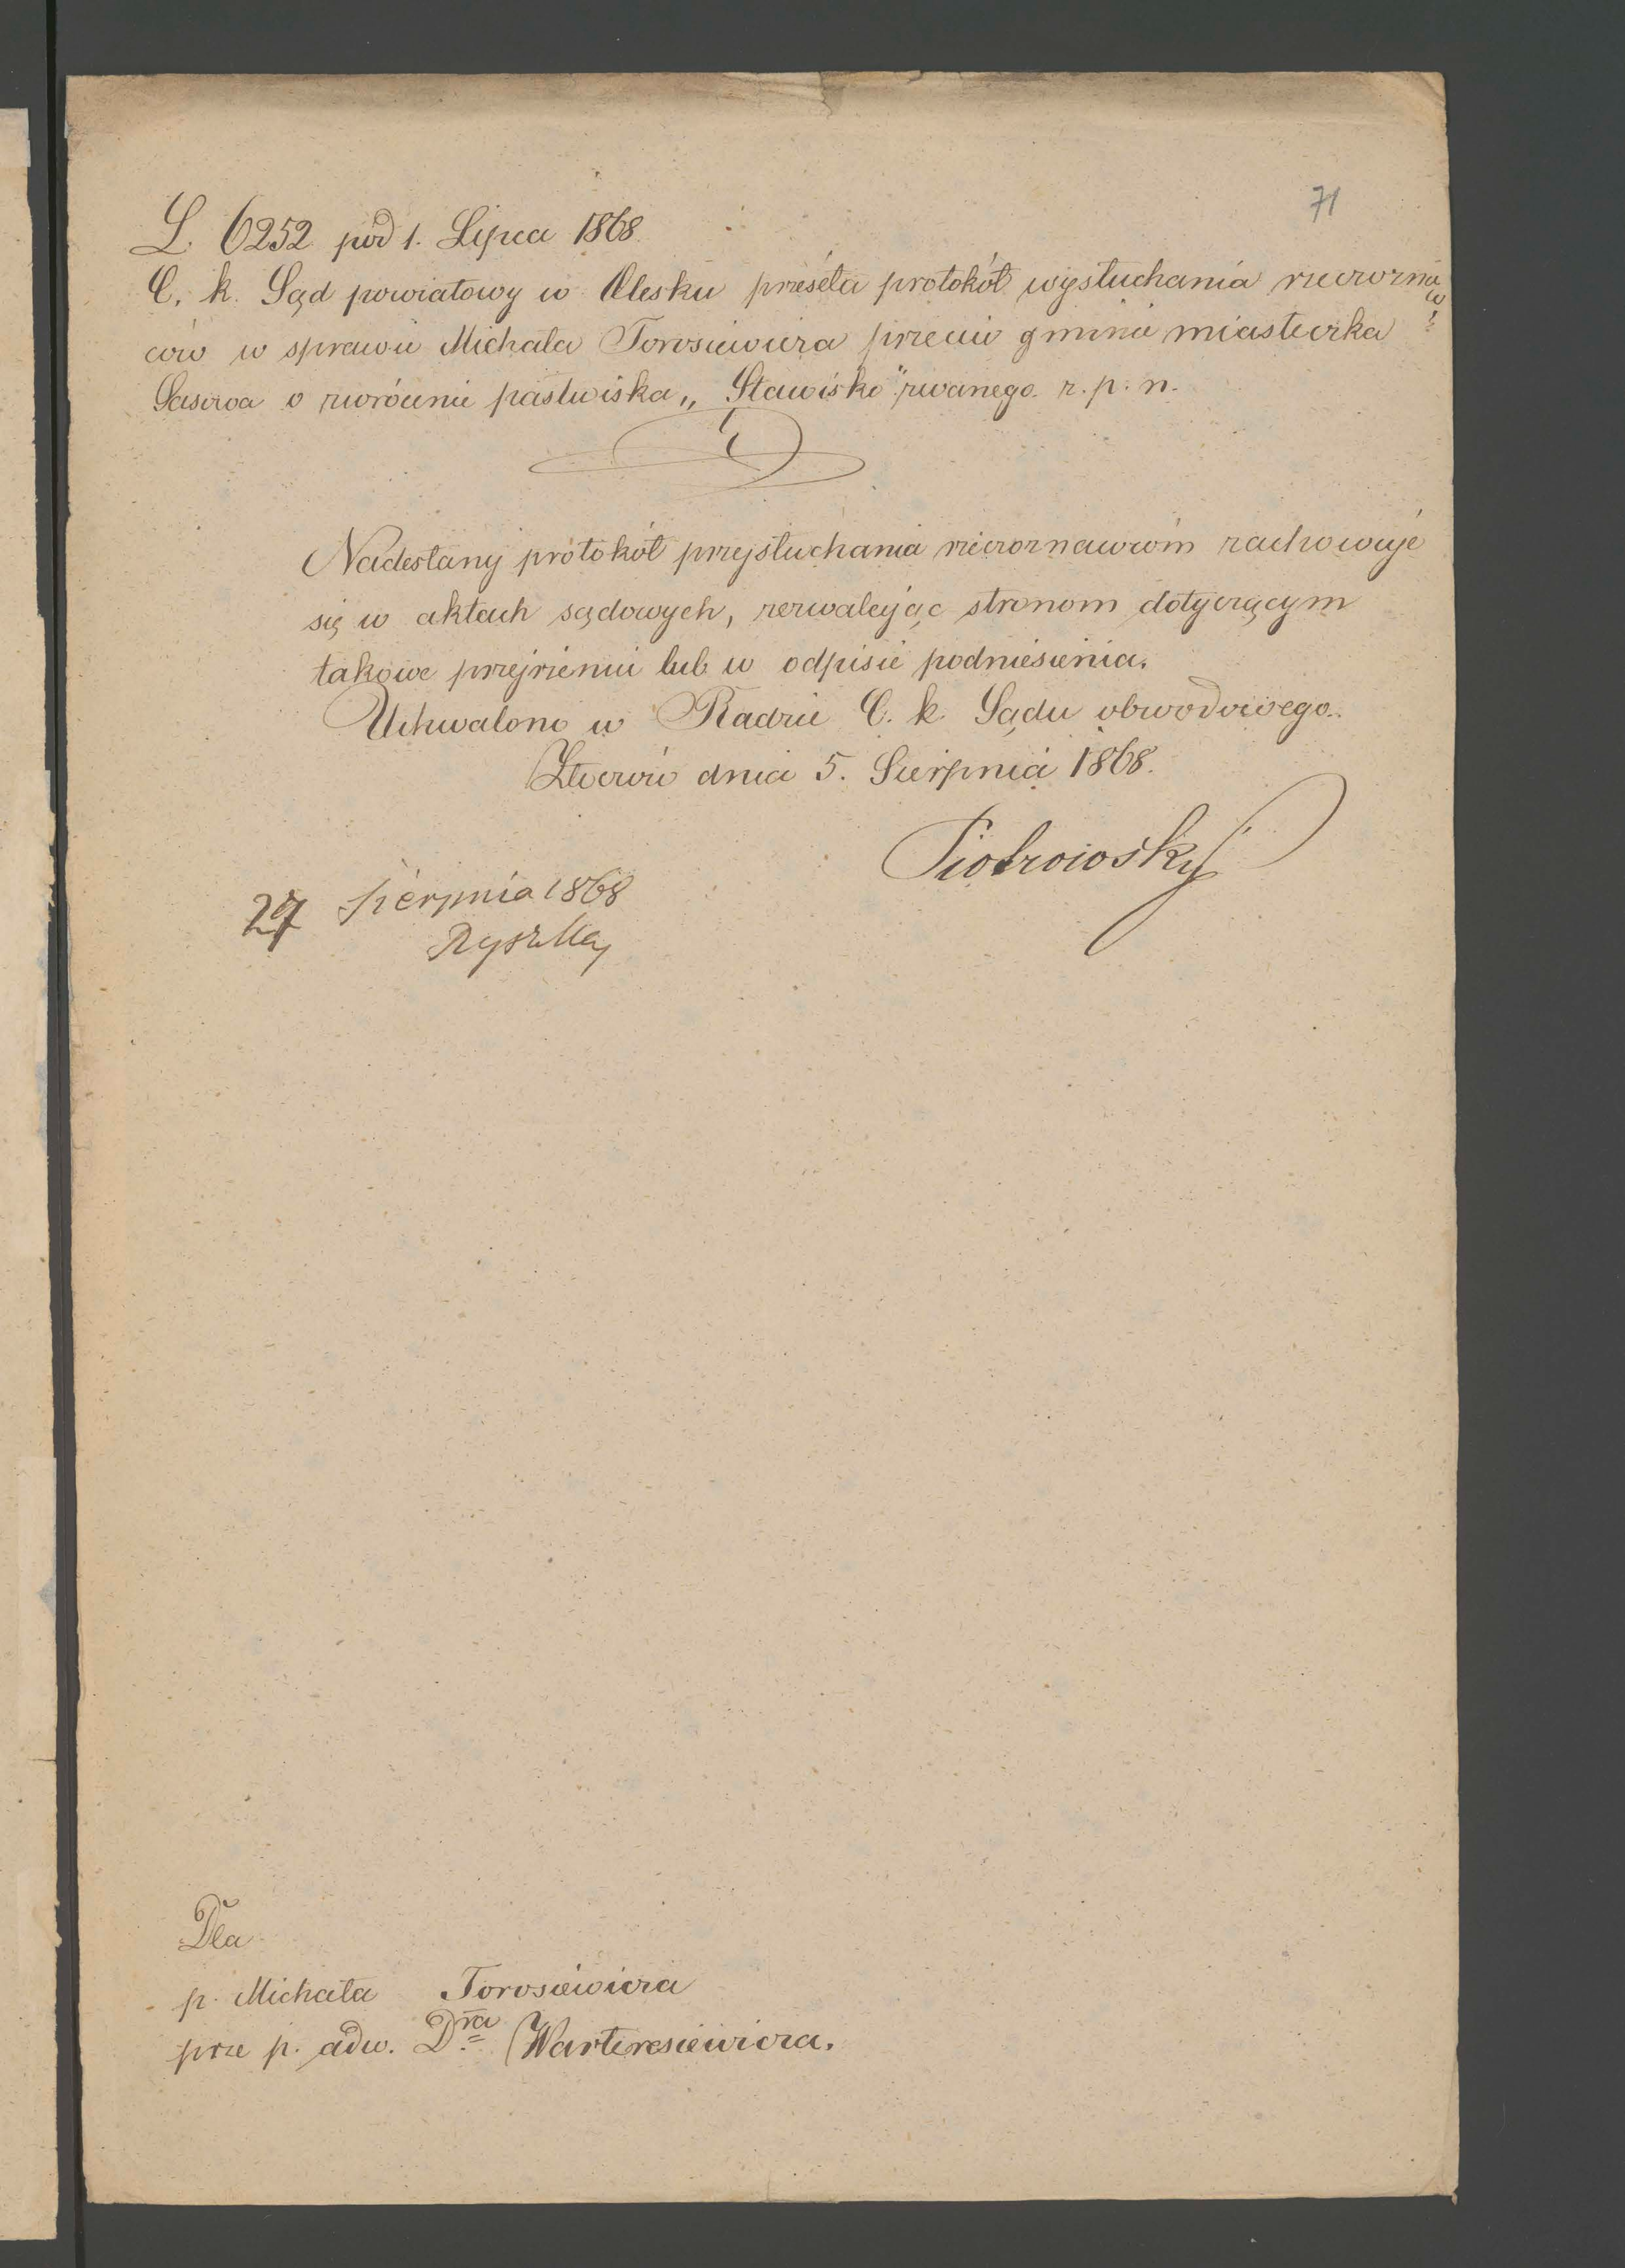 71
L. 6252 pod 1. Lipca 1868.
C. k. Sąd powiatowy w Olesku prześéła protokół wysłuchania rzeczoznaw=
ców w sprawie Michała Torosiewicza przeciw gminie miasteczka
Sasowa o zwrócenie pastwiska „Stawisko" zwanego z. p. n.
Nadesłany protokół przysłuchania rzeczoznawców zachowuje
się w aktach sądowych, zezwalając stronom dotyczącym
takowe przejrzenia lub w odpisie podniesienia.
Uchwalono w Radzie C. k. Sądu obwodowego.
Złoczów dnia 5. Sierpnia 1868.
Piotrowski
27 Sierpnia 1868
Dla
p. Michała Torosiewicza
prze p. adw. Dra Warteresiewicza.